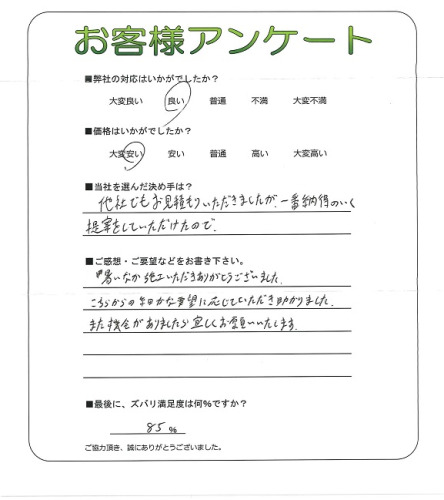 お客様アンケート
■弊社の対応はいかがでしたか?
大変良い 良い 普通 不満 大変不満
■価格はいかがでしたか?
大変安い 安い 普通 高い 大変高い
■当社を選んだ決め手は?
他社でもお見積もりいただきましたが、一番納得のいく
提案をしていただけたので。
■ご感想・ご要望などをお書き下さい。
暑いなか施工いただきありがとうございました。
こちらからの 要望に応じていただき助かりました。
また機会がありましたら宜しくお願いいたします。
■最後に、ズバリ満足度は何%ですか?
85 %
ご協力頂き、誠にありがとうございました。